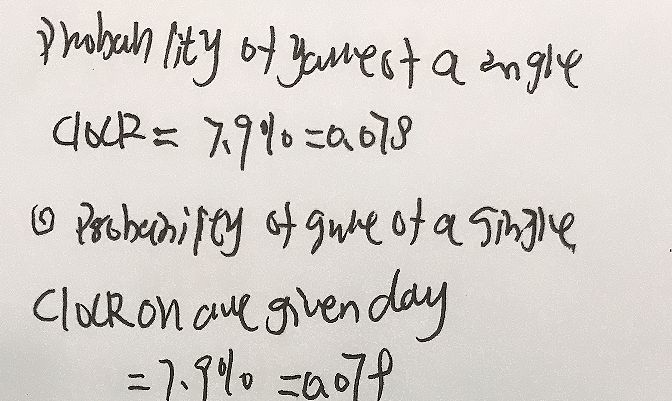 Probability of failure of a single
Clock = 7.9% = 0.079
① Probability of failure of a single
Clock on one given day
= 7.9% = 0.079